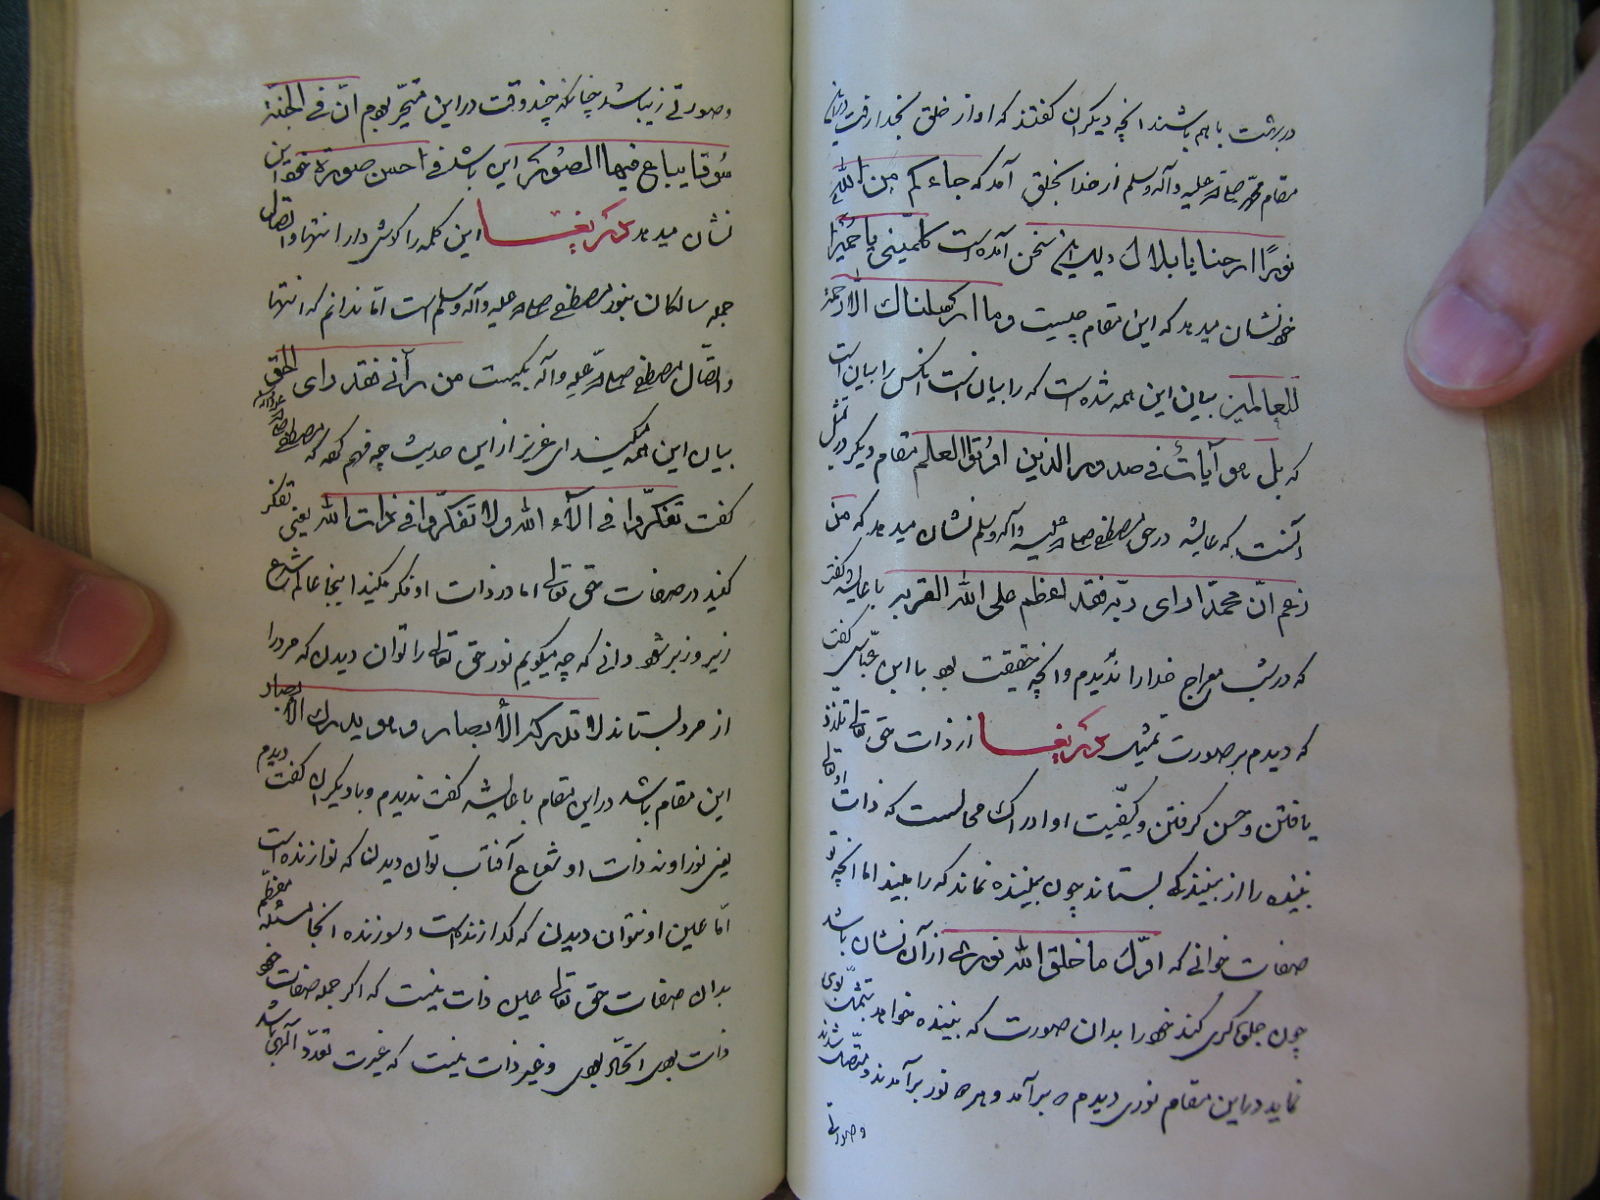 در بهشت با هم باشند آنچه دیگران گفتند که او از خلق بخدا رفت در این
مقام محمد صلی الله علیه وآله وسلم از خدا بخلق آمد که جاءکم من الله
نورًا ارحنا یا بلال دلیل این سخن آمده است کلمینی یا حمیرا
خود نشان میدهد که این مقام چیست وما ارسلناك الّا رحمة
للعالمین بیان این همه شده است که را بیان است آنکس را بیان است
که بل هو آیاتٌ فی صدور الذین اوتوا العلم مقام دیگر در تمثل
آنست که عایشه در حق مصطفی صلی الله علیه وآله وسلم نشان میدهد که من
زعم انّ محمدًا رای ربه فقد اعظم علی الله الفریه با عایشه گفت
که در شب معراج خدا را ندیدم و آنچه حقیقت بود با ابن عبّاس گفت
که دیدم بر صورت تمثیل ای عزیز از ذات حق تعالی تلذذ
یافتن و حسن گرفتن و کیفّیت او ادراك محالست که ذات او تعالی
بیننده را از بینندگی بستاند چون بیننده نماند که را بیند اما آنچه تو
صفات خوانی که اوّل ما خلق الله نوری از آن نشان باشد
چون جلوه گری کند خود را بدان صورت که بیننده خواهد بتمثل بوی
نماید در این مقام نوری دیدم که برآمد و هم نور برآمدند و متصل شدند
وصورتی
وصورتی زیبا شد چنانکه چند وقت در این متحیّر بودم انّ فی الجنّة
سُوقا یباع فیها الصُور این باشد فی احسن صورة خود این
نشان میدهد ای عزیز این کلمه را گوش دار انتها و اتصال
جمله سالکان بنور مصطفی صلی الله علیه وآله وسلم است امّا ندانم که انتها
و اتصّال مصطفی صلی الله علیه وآله بکیست من رآنی فقد رای الحق
بیان این همه میکند ای عزیز از این حدیث چه فهم که مصطفی صلی الله علیه وآله
گفت تفکّروا فی آلاء الله ولا تفکّروا فی ذات الله یعنی تفکر
کنید در صفات حق تعالی اما در ذات او فکر مکنید اینجا عالم شرع
زیر و زبر شود دانی که چه میگویم نور حق تعالی را توان دیدن که مرد را
از مرد بستاند لا تدرکه الأبصار و هو یدرك الأبصار
این مقام باشد در این مقام با عایشه گفت ندیدم و با دیگران گفت دیدم
یعنی نور او نه ذات او شعاع آفتاب توان دیدن که نوازنده است
امّا عین او نتوان دیدن که گدازنده است و سوزنده اینجا مسئله معظّم
بدان صفات حق تعالی عین ذات نیست که اگر جمله صفات خود
ذات بودی اتحّاد بودی و غیر ذات نیست که غیریت تعدّد الهی باشد